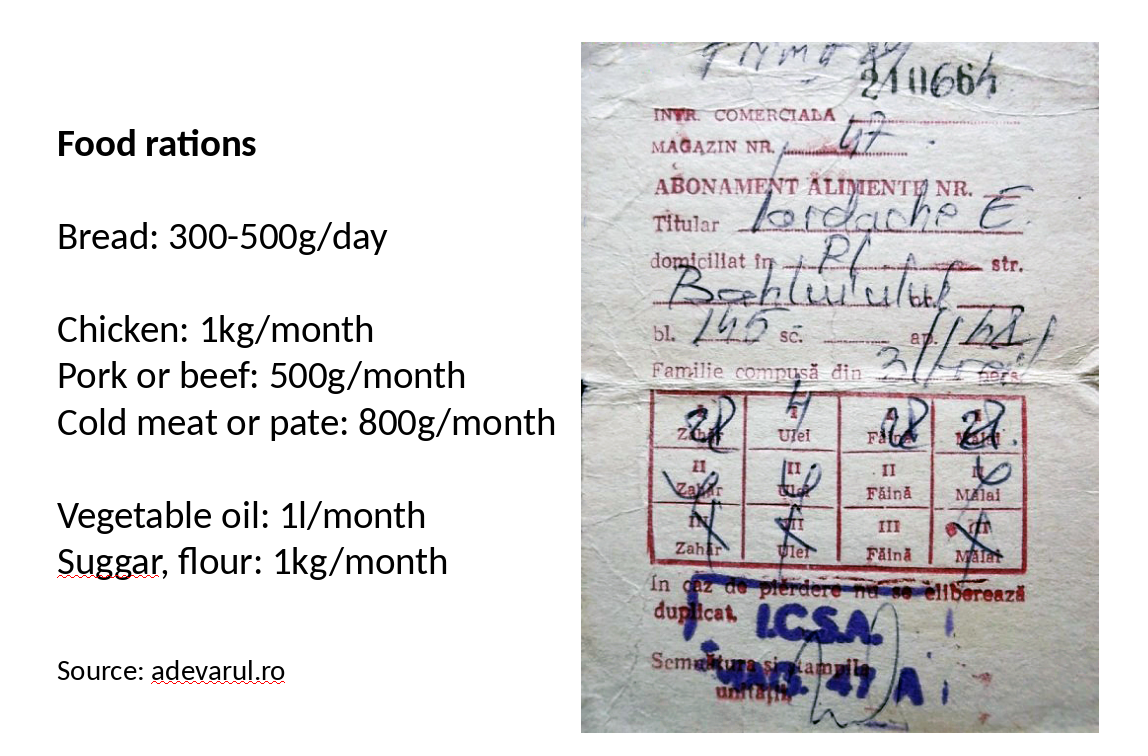 Food rations
Bread: 300-500g/day
Chicken: 1kg/month
Pork or beef: 500g/month
Cold meat or pate: 800g/month
Vegetable oil: 1l/month
Suggar, flour: 1kg/month
Source: adevarul.ro
210664
INTR. COMERCIALA
MAGAZIN NR. 47
ABONAMENT ALIMENTE NR.
Titular Iordache E.
domiciliat în Pl str.
nr.
bl. 145 sc. ap.
Familie compusă din 3 pers.
I I I I
Zahăr Ulei Făină Mălai
II II II II
Zahăr Ulei Făină Mălai
III III III III
Zahăr Ulei Făină Mălai
În caz de pierdere nu se eliberează
duplicat.
I.C.S.A.
Semnătura și ștampila
47 A
unității,